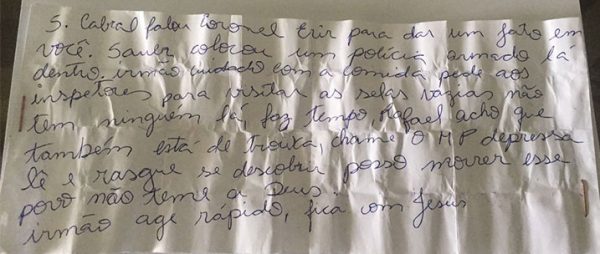 S. Cabral falou Coronel Erir para dar um fato em
você. Sauler colocou um polícia armado lá
dentro, irmão cuidado com a comida pede aos
inspetores para visitar as selas vazias não
tem ninguém lá faz tempo, Rafael acho que
também está de trouxa, chame o MP depressa
lê e rasgue se descobrir posso morrer esse
povo não teme a Deus
irmão age rápido, fica com Jesus